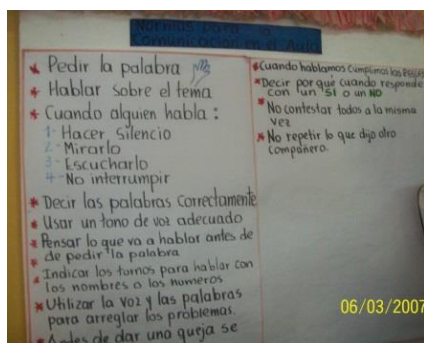 Normas para la
comunicación en el Aula
* Pedir la palabra
* Hablar sobre el tema
* Cuando alguien habla:
1- Hacer Silencio
2- Mirarlo
3- Escucharlo
4- No interrumpir
* Decir las palabras Correctamente
* Usar un tono de voz adecuado
* Pensar lo que va a hablar antes de
de pedir la palabra
* Indicar los turnos para hablar con
los nombres o los numeros
* Utilizar la voz y las palabras
para arreglar los problemas.
* Antes de dar una queja se
* Cuando hablamos cumplimos las
* Decir por qué cuando responde
con un SI o un NO
* No contestar todos a la misma
vez
* No repetir lo que dijo otro
compañero.
06/03/2007